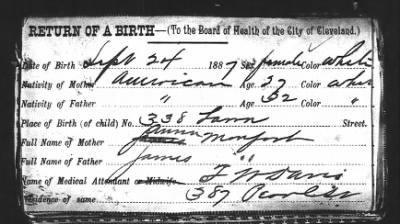 RETURN OF A BIRTH—(To the Board of Health of the City of Cleveland.)
Date of Birth Sept 24 1887 Sex female Color white
Nativity of Mother American Age 27 Color white
Nativity of Father " Age 32 Color "
Place of Birth (of child) No. 338 Street.
Full Name of Mother Monfort
Full Name of Father James "
Name of Medical Attendant or Midwife, F W Davis
Residence of same 387